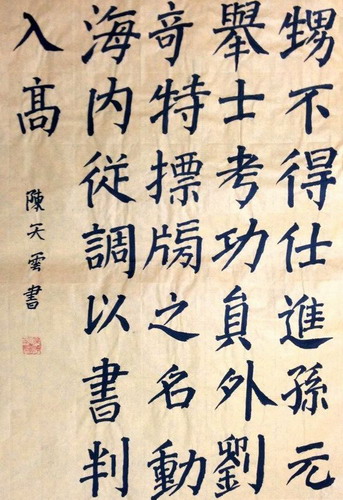 甥不得仕進孫元
舉士考功員外劉
奇特摽牓之名動
海内從調以書判
入髙
陳天雲書